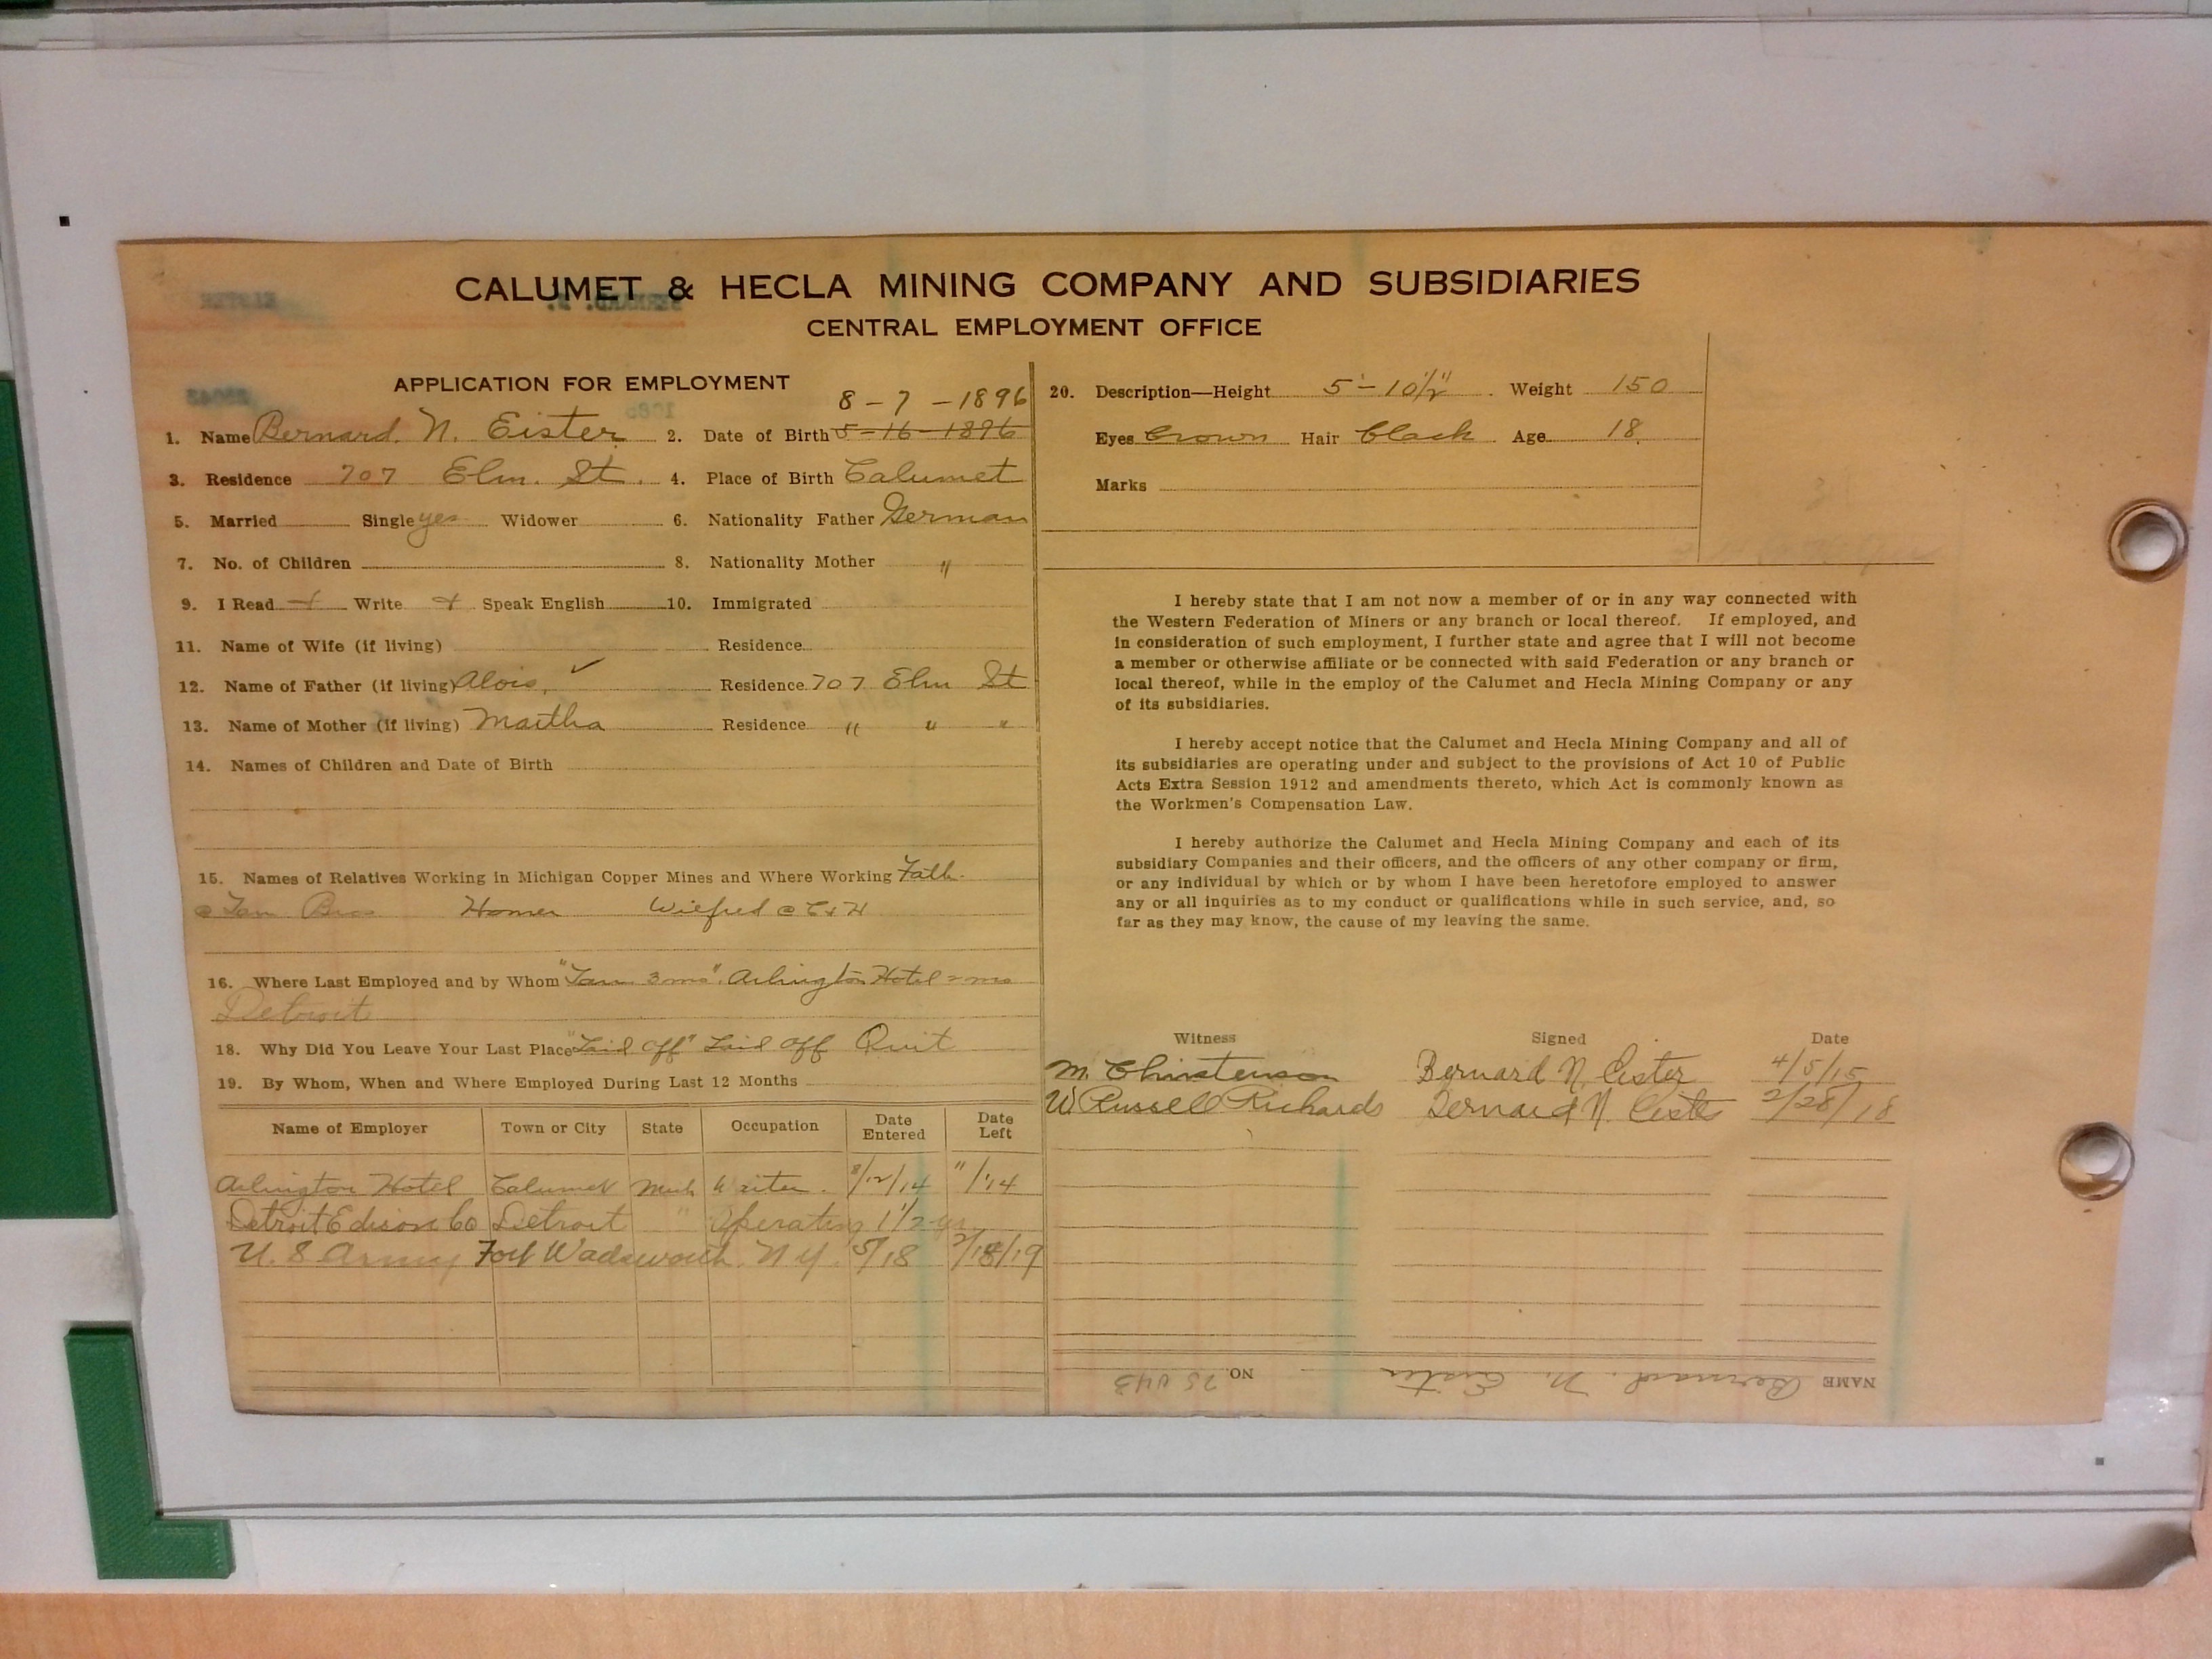 CALUMET & HECLA MINING COMPANY AND SUBSIDIARIES
CENTRAL EMPLOYMENT OFFICE
APPLICATION FOR EMPLOYMENT
8-7-1896
1. Name Bernard. N. Eister 2. Date of Birth 5-16-1896
3. Residence 707 Elm. St. 4. Place of Birth Calumet
5. Married Single yes Widower 6. Nationality Father German
7. No. of Children 8. Nationality Mother "
9. I Read + Write + Speak English 10. Immigrated
11. Name of Wife (if living) Residence
12. Name of Father (if living) Alois, ✓ Residence 707 Elm St
13. Name of Mother (if living) Martha Residence " " "
14. Names of Children and Date of Birth
15. Names of Relatives Working in Michigan Copper Mines and Where Working Fath.
@ Tam Bros Homer Wilfred @ C&H
16. Where Last Employed and by Whom "Tam 3 mo". Arlington Hotel 2 mo
Detroit
18. Why Did You Leave Your Last Place "Laid off" Laid off Quit
19. By Whom, When and Where Employed During Last 12 Months
Name of Employer Town or City State Occupation Date Entered Date Left
Arlington Hotel Calumet Mich Waiter. 8/12/14 11/14
Detroit Edison Co Detroit " Operating 1 1/2 yr
U. S Army Fort Wadsworth. N Y. 5/18 2/18/19
20. Description—Height 5'-10½" Weight 150
Eyes brown Hair black Age 18.
Marks
I hereby state that I am not now a member of or in any way connected with
the Western Federation of Miners or any branch or local thereof. If employed, and
in consideration of such employment, I further state and agree that I will not become
a member or otherwise affiliate or be connected with said Federation or any branch or
local thereof, while in the employ of the Calumet and Hecla Mining Company or any
of its subsidiaries.
I hereby accept notice that the Calumet and Hecla Mining Company and all of
its subsidiaries are operating under and subject to the provisions of Act 10 of Public
Acts Extra Session 1912 and amendments thereto, which Act is commonly known as
the Workmen's Compensation Law.
I hereby authorize the Calumet and Hecla Mining Company and each of its
subsidiary Companies and their officers, and the officers of any other company or firm,
or any individual by which or by whom I have been heretofore employed to answer
any or all inquiries as to my conduct or qualifications while in such service, and, so
far as they may know, the cause of my leaving the same.
Witness Signed Date
M. Christenson Bernard N. Eister 4/5/15
W Russell Richards Bernard N. Eister 2/28/18
NAME Bernard. N. Eister NO. 25043